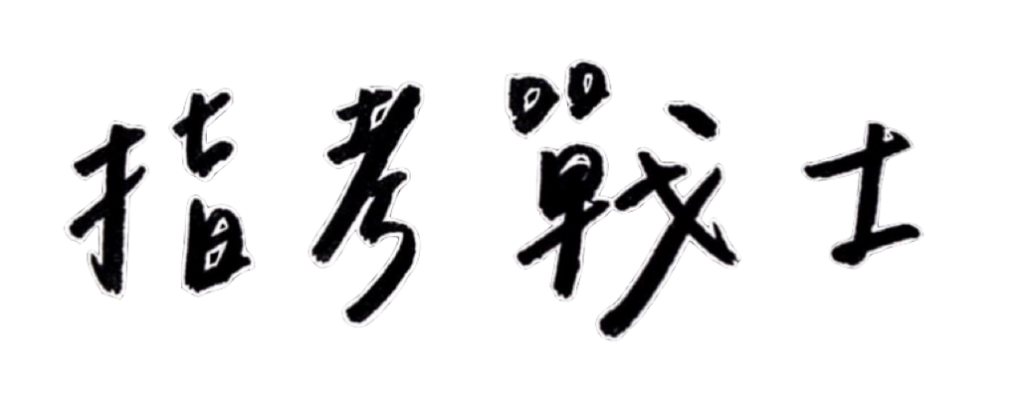 指考戰士